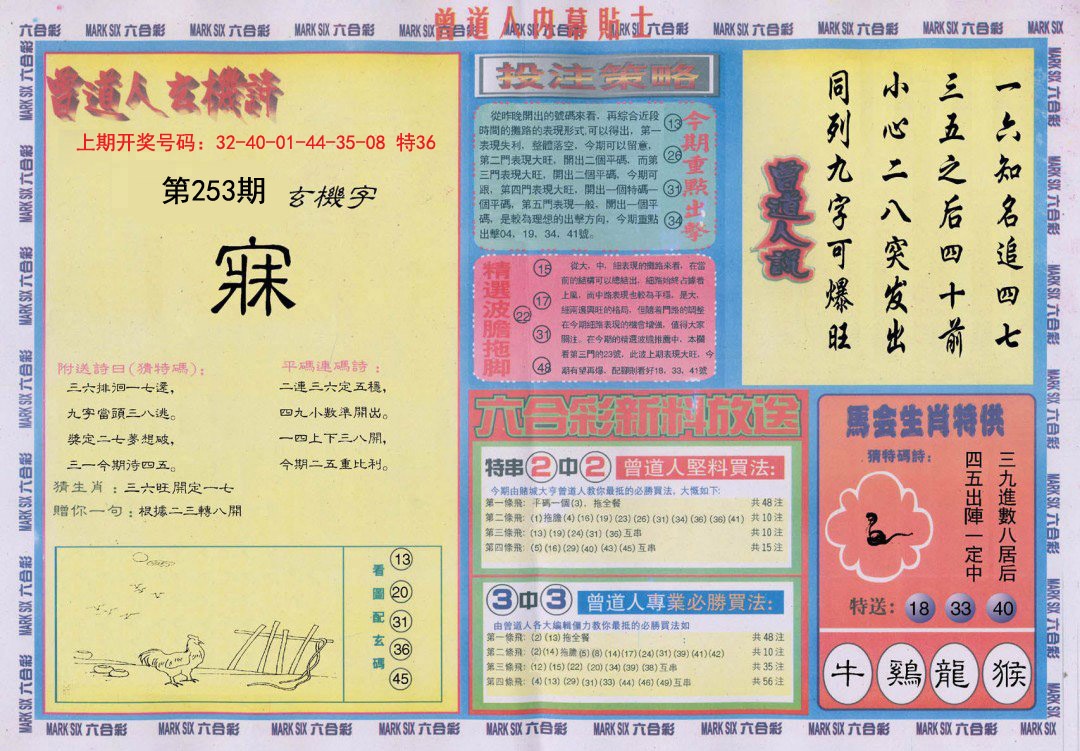 曾道人内幕貼士
MARK SIX 六合彩
曾道人玄機詩
上期开奖号码：32-40-01-44-35-08 特36
第253期 玄機字
附送詩曰(猜特碼)：
三六排徊一七邊，
九字當頭三八逃。
獎定二七夢想破，
三一今期待四五。
平碼連碼詩：
二連三六定五穩，
四九小數準開出。
一四上下三八開，
今期二五重比利。
猜生肖：三六旺開定一七
贈你一句：根據二三轉八開
看圖配玄碼
13
20
31
36
45
投注策略
從昨晚開出的號碼來看，再綜合近段
時間的攤路的表現形式,可以得出，第一
表現失利，整體落空，今期可以留意，
第二門表現大旺，開出二個平碼，而第
三門表現大旺，開出二個平碼，今期可
跟，第四門表現大旺，開出一個特碼一
個平碼，第五門表現一般，開出一個平
碼，是較為理想的出擊方向，今期重點
出擊04、19、34、41號。
13
26
31
34
今期重點出擊
精選波膽拖脚
15
17
22
31
48
從大、中、細表現的攤路來看，在當
前的結構可以總結出，細路始終占據着
上風，而中路表現也較為平穩，是大、
細兩邊興旺的格局，但隨着門路的調整
在今期細路表現的機會增強，值得大家
關注。在今期的精選波膽推薦中，本欄
看第三門的23號，此波上期表現大旺，今
期有望再爆，配腳則看好18、33、41號
曾道人說
一六知名追四七
三五之后四十前
小心二八突发出
同列九字可爆旺
六合彩新料放送
特串2中2 曾道人堅料買法:
今期由賭城大亨曾道人教你最抵的必勝買法，大慨如下:
第一條飛: 平碼一個(3)．拖全餐 共48注
第二條飛: (1)拖膽(4)(16)(19)(23)(26)(31)(34)(36)(36)(41) 共10注
第三條飛: (13)(19)(24)(31)(36)互串 共10注
第四條飛: (5)(16)(29)(40)(43)(45)互串 共15注
3中3 曾道人專業必勝買法:
由曾道人各大編輯僵力教你最抵的必勝買法如
第一條飛: (2)(13)拖全餐 共48注
第二條飛: (2)(14)拖膽(5)(8)(14)(17)(24)(31)(39)(41)(42) 共10注
第三條飛: (12)(15)(22)(20)(34)(39)(38)互串 共35注
第四條飛: (4)(13)(29)(31)(33)(44)(46)(49)互串 共56注
馬会生肖特供
猜特碼詩:
三九進數八居后
四五出陣一定中
特送: 18 33 40
牛 鷄 龍 猴
MARK SIX 六合彩